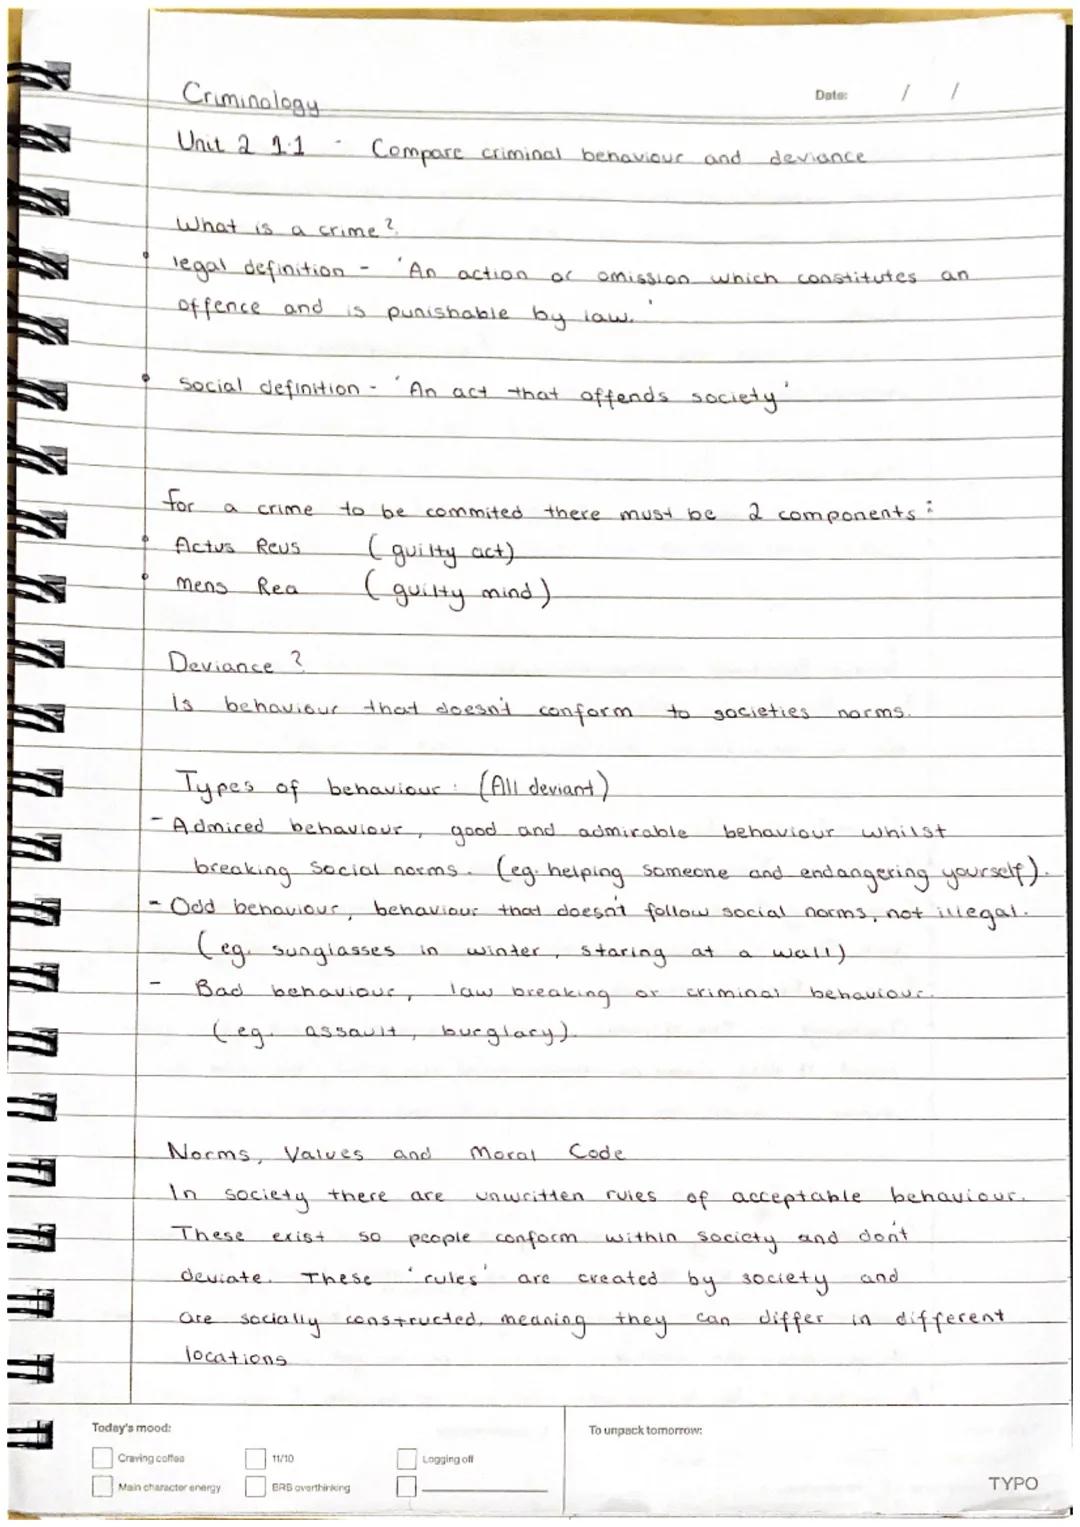 Criminology
Date: / /
Unit 2 1.1 - Compare criminal behaviour and deviance
What is a crime?
legal definition - 'An action or omission which constitutes an
offence and is punishable by law.'
Social definition - 'An act that offends society'
for a crime to be commited there must be 2 components:
Actus Reus (guilty act)
Mens Rea (guilty mind)
Deviance?
Is behaviour that doesn't conform to societies norms.
Types of behaviour: (All deviant)
- Admired behaviour, good and admirable behaviour whilst
breaking social norms. (eg. helping someone and endangering yourself).
- Odd behaviour, behaviour that doesn't follow social norms, not illegal.
(eg. sunglasses in winter, staring at a wall)
- Bad behaviour, law breaking or criminal behaviour.
(eg. assault, burglary).
Norms, Values and Moral Code
In society there are unwritten rules of acceptable behaviour.
These exist so people conform within society and don't
deviate. These 'rules' are created by society and
are socially constructed, meaning they can differ in different
locations
Today's mood:
To unpack tomorrow:
Craving coffee
11/10
Logging off
Main character energy
BRB overthinking
TYPO